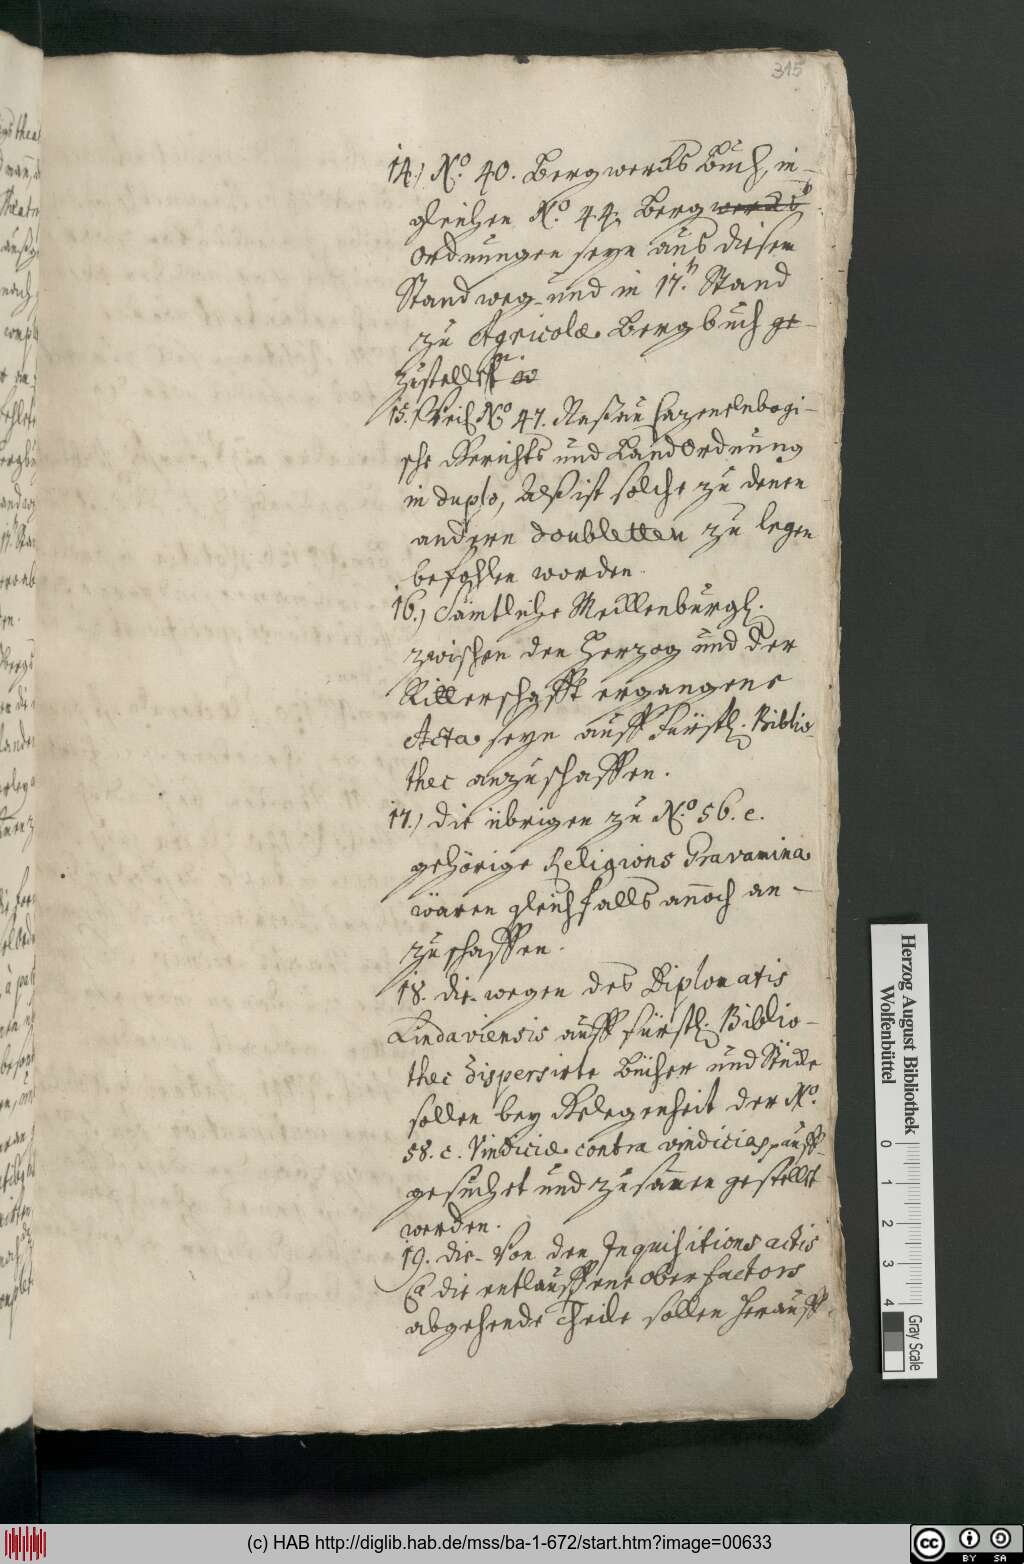 315
14.) N.º 40. Bergwercks Buch, in-
gleichen N.º 44. Berg wercks
Ordnungen seyn aus diesem
Stand weg- und in 17.ⁿ Stand
zu Agricolæ Bergbuch ge-
zustellet
15. Weil N.º 47. Naßau Cazenelnbogi-
sche Gerichts und LandOrdnung
in duplo, Alß ist solche zu denen
andern doubletten zu legen
befohlen worden.
16.) Sämtliche Mecklenburgl.
zwischen den Herzog und der
Ritterschafft ergangene
Acta seyn auff Fürstl. Biblio-
thec anzuschaffen.
17.) die übrigen zu N.º 56. c.
gehörige Religions Gravamina
wären gleichfalls annoch an-
zuschaffen.
18. die wegen des Diplomatis
Lindaviensis auff Fürstl. Biblio-
thec dispersirte Bücher und Stücke
sollen bey Gelegenheit der N.º
58. c. Vindiciæ contra vindicias, auff-
gesuchet und zusammen gestellet
werden.
19. die von den Inquisitions actis
die entlauffene Oberfactors
abgehende Theile sollen herauff-
Herzog August Bibliothek
Wolfenbüttel
0 1 2 3 4
Gray Scale
(c) HAB http://diglib.hab.de/mss/ba-1-672/start.htm?image=00633
cc BY SA